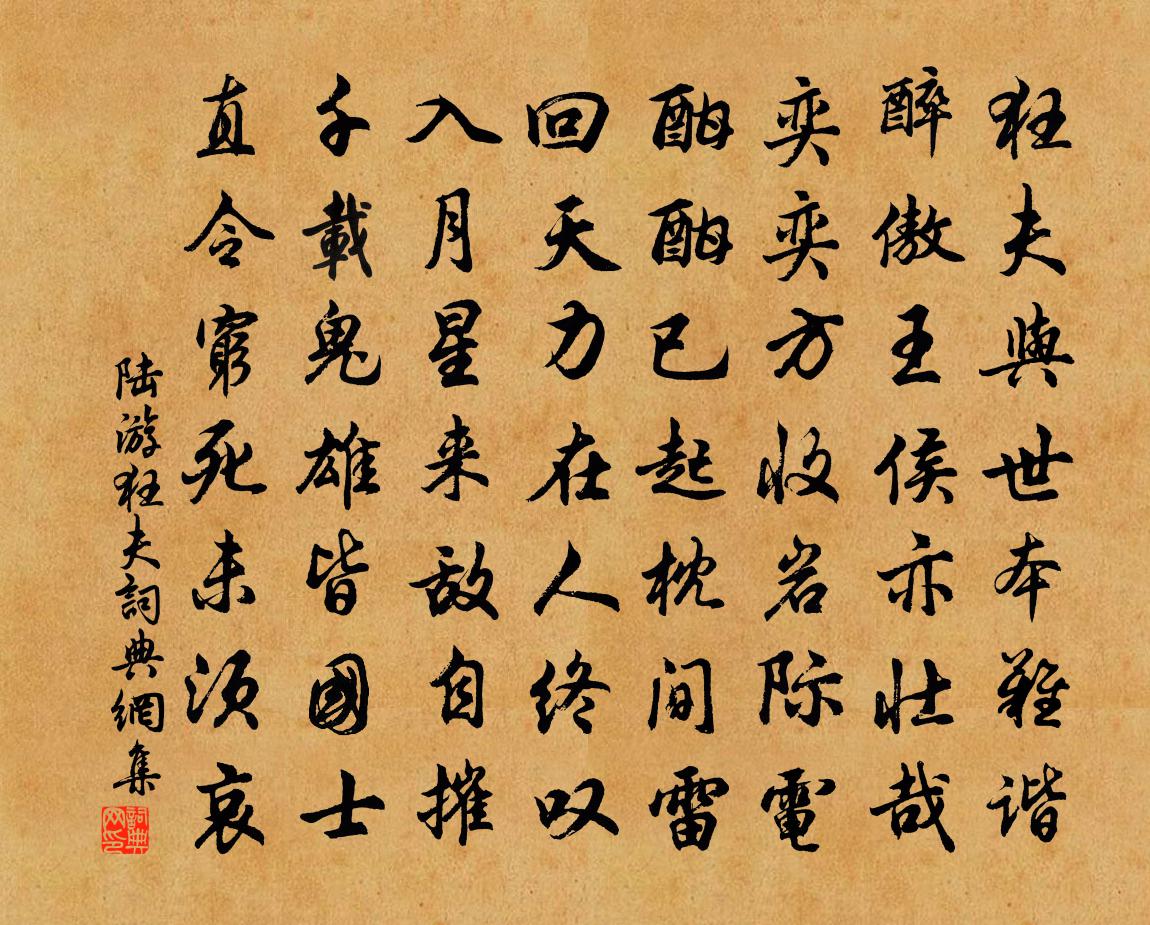 狂夫與世本難谐
醉傲王侯亦壮哉
奕奕方收岩际電
酣酣已起枕间雷
回天力在人终叹
入月星来敌自摧
千載鬼雄皆國士
直令窮死未须哀
陆游狂夫詞典網集
詞典网印